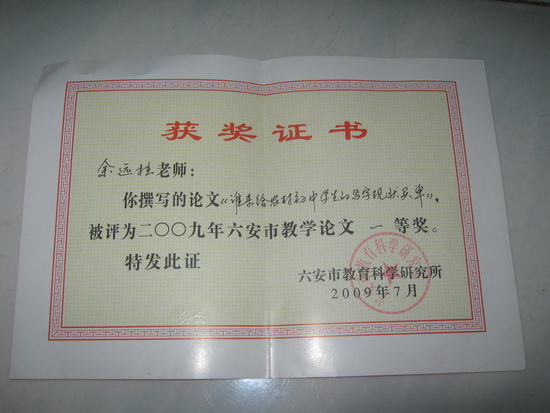 获奖证书
余远柱老师：
你撰写的论文《谁来给农村初中学生的写字现状买单》，
被评为二〇〇九年六安市教学论文 一 等奖。
特发此证
六安市教育科学研究所
2009年7月